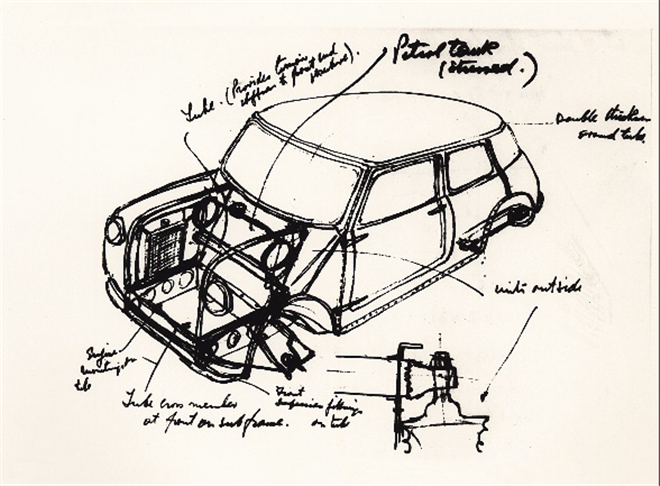 Petrol tank
(stressed.)
Tube. (Provides torsion and
stiffness to front end
structure).
Double thickness
around tube.
units outside
Engine
mounting on
tube
Tube cross member
at front on subframe.
Front
suspension fittings
on tube